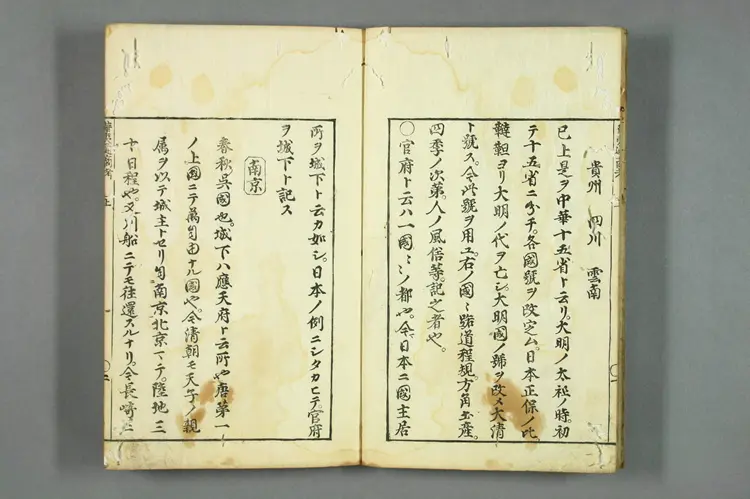 貴州 四川 雲南
已上是ヲ中華十五省ト云リ。大明ノ太祖ノ時。初
テ十五省ニ分チ。各國號ヲ改定ム。日本正保ノ比
韃靼ヨリ大明ノ代ヲ亡シ。大明國ノ號ヲ改メ大清
ト號ス。今此號ヲ用ユ。右ノ國〻路道程規方角土産。
四季ノ次第。人ノ風俗等。記之者也。
○官府ト云ハ一國〻〻ノ都也。今日本ニ國主居
所ヲ城下ト云カ如シ。日本ノ例ニシタカヒテ官府
ヲ城下ト記ス
南京
春秋ノ呉國也。城下ハ應天府ト云所也唐第一
ノ上國ニテ萬自由ナル國也。今清朝モ天子ノ親
属ヲ以テ城主トセリ。南京北京マテ。陸地三
十日程也。又川船ニテモ往還スルナリ。今長崎ニ